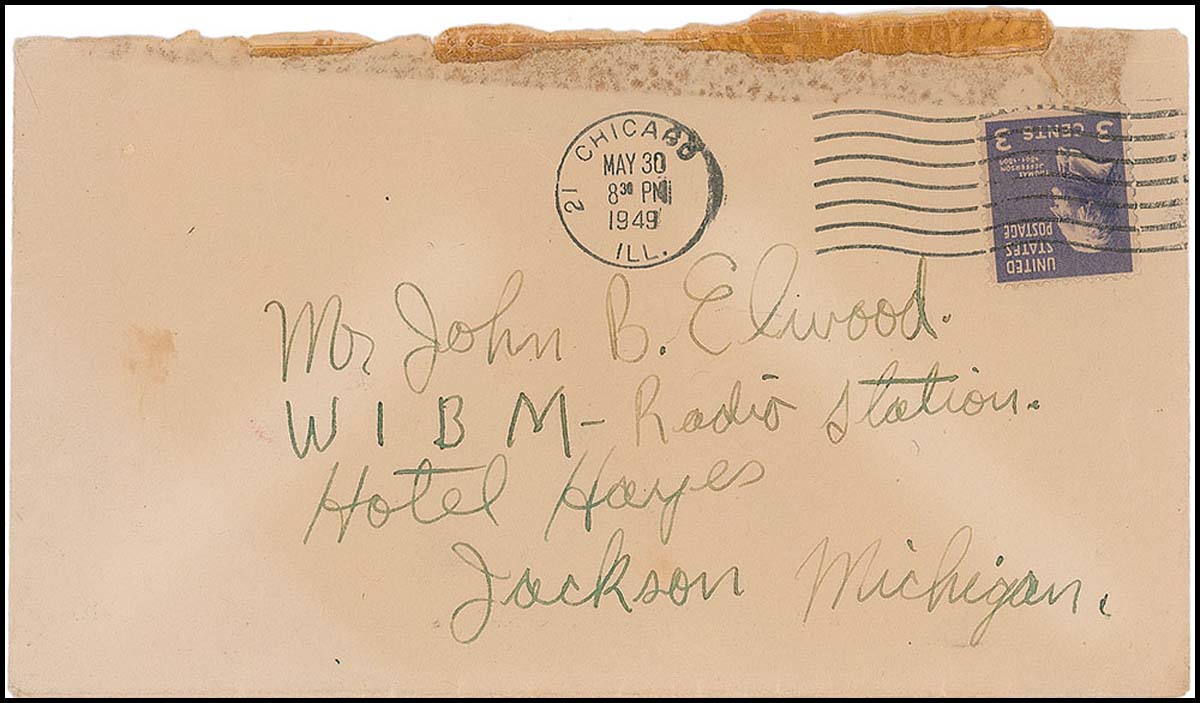 CHICAGO
21
MAY 30
8 30 PM
1949
ILL.
3 CENTS 3
THOMAS
JEFFERSON
1801-1809
UNITED
STATES
POSTAGE
Mr John B. Elwood.
W I B M - Radio Station.
Hotel Hayes
Jackson Michigan.